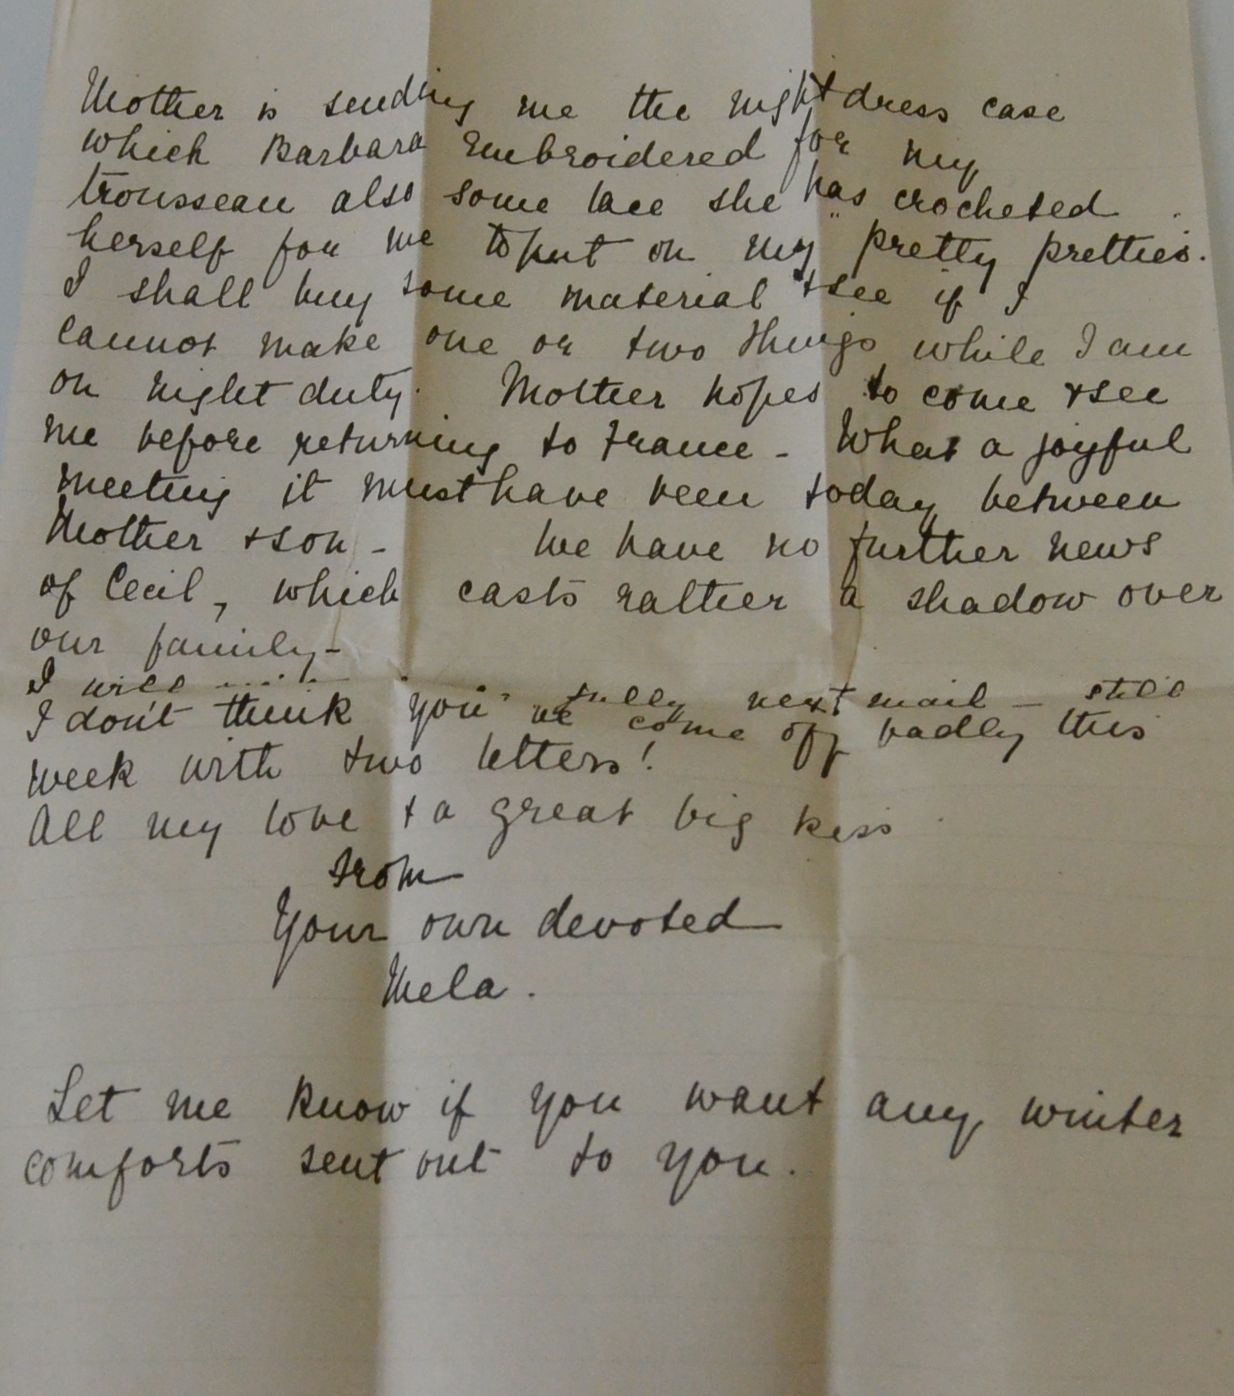 Mother is sending me the nightdress case
which Barbara embroidered for my
trousseau also some lace she has crocheted
herself for me to put on my "pretty pretties.
I shall buy some material & see if I
cannot make one or two things while I am
on night duty. Mother hopes to come & see
me before returning to France - What a joyful
meeting it must have been today between
Mother & son - We have no further news
of Cecil, which casts rather a shadow over
our family -
I will fully next mail - still
I don't think you've come off badly this
week with two letters!
All my love & a great big kiss
from
Your own devoted
Mela.
Let me know if you want any winter
comforts sent out to you.